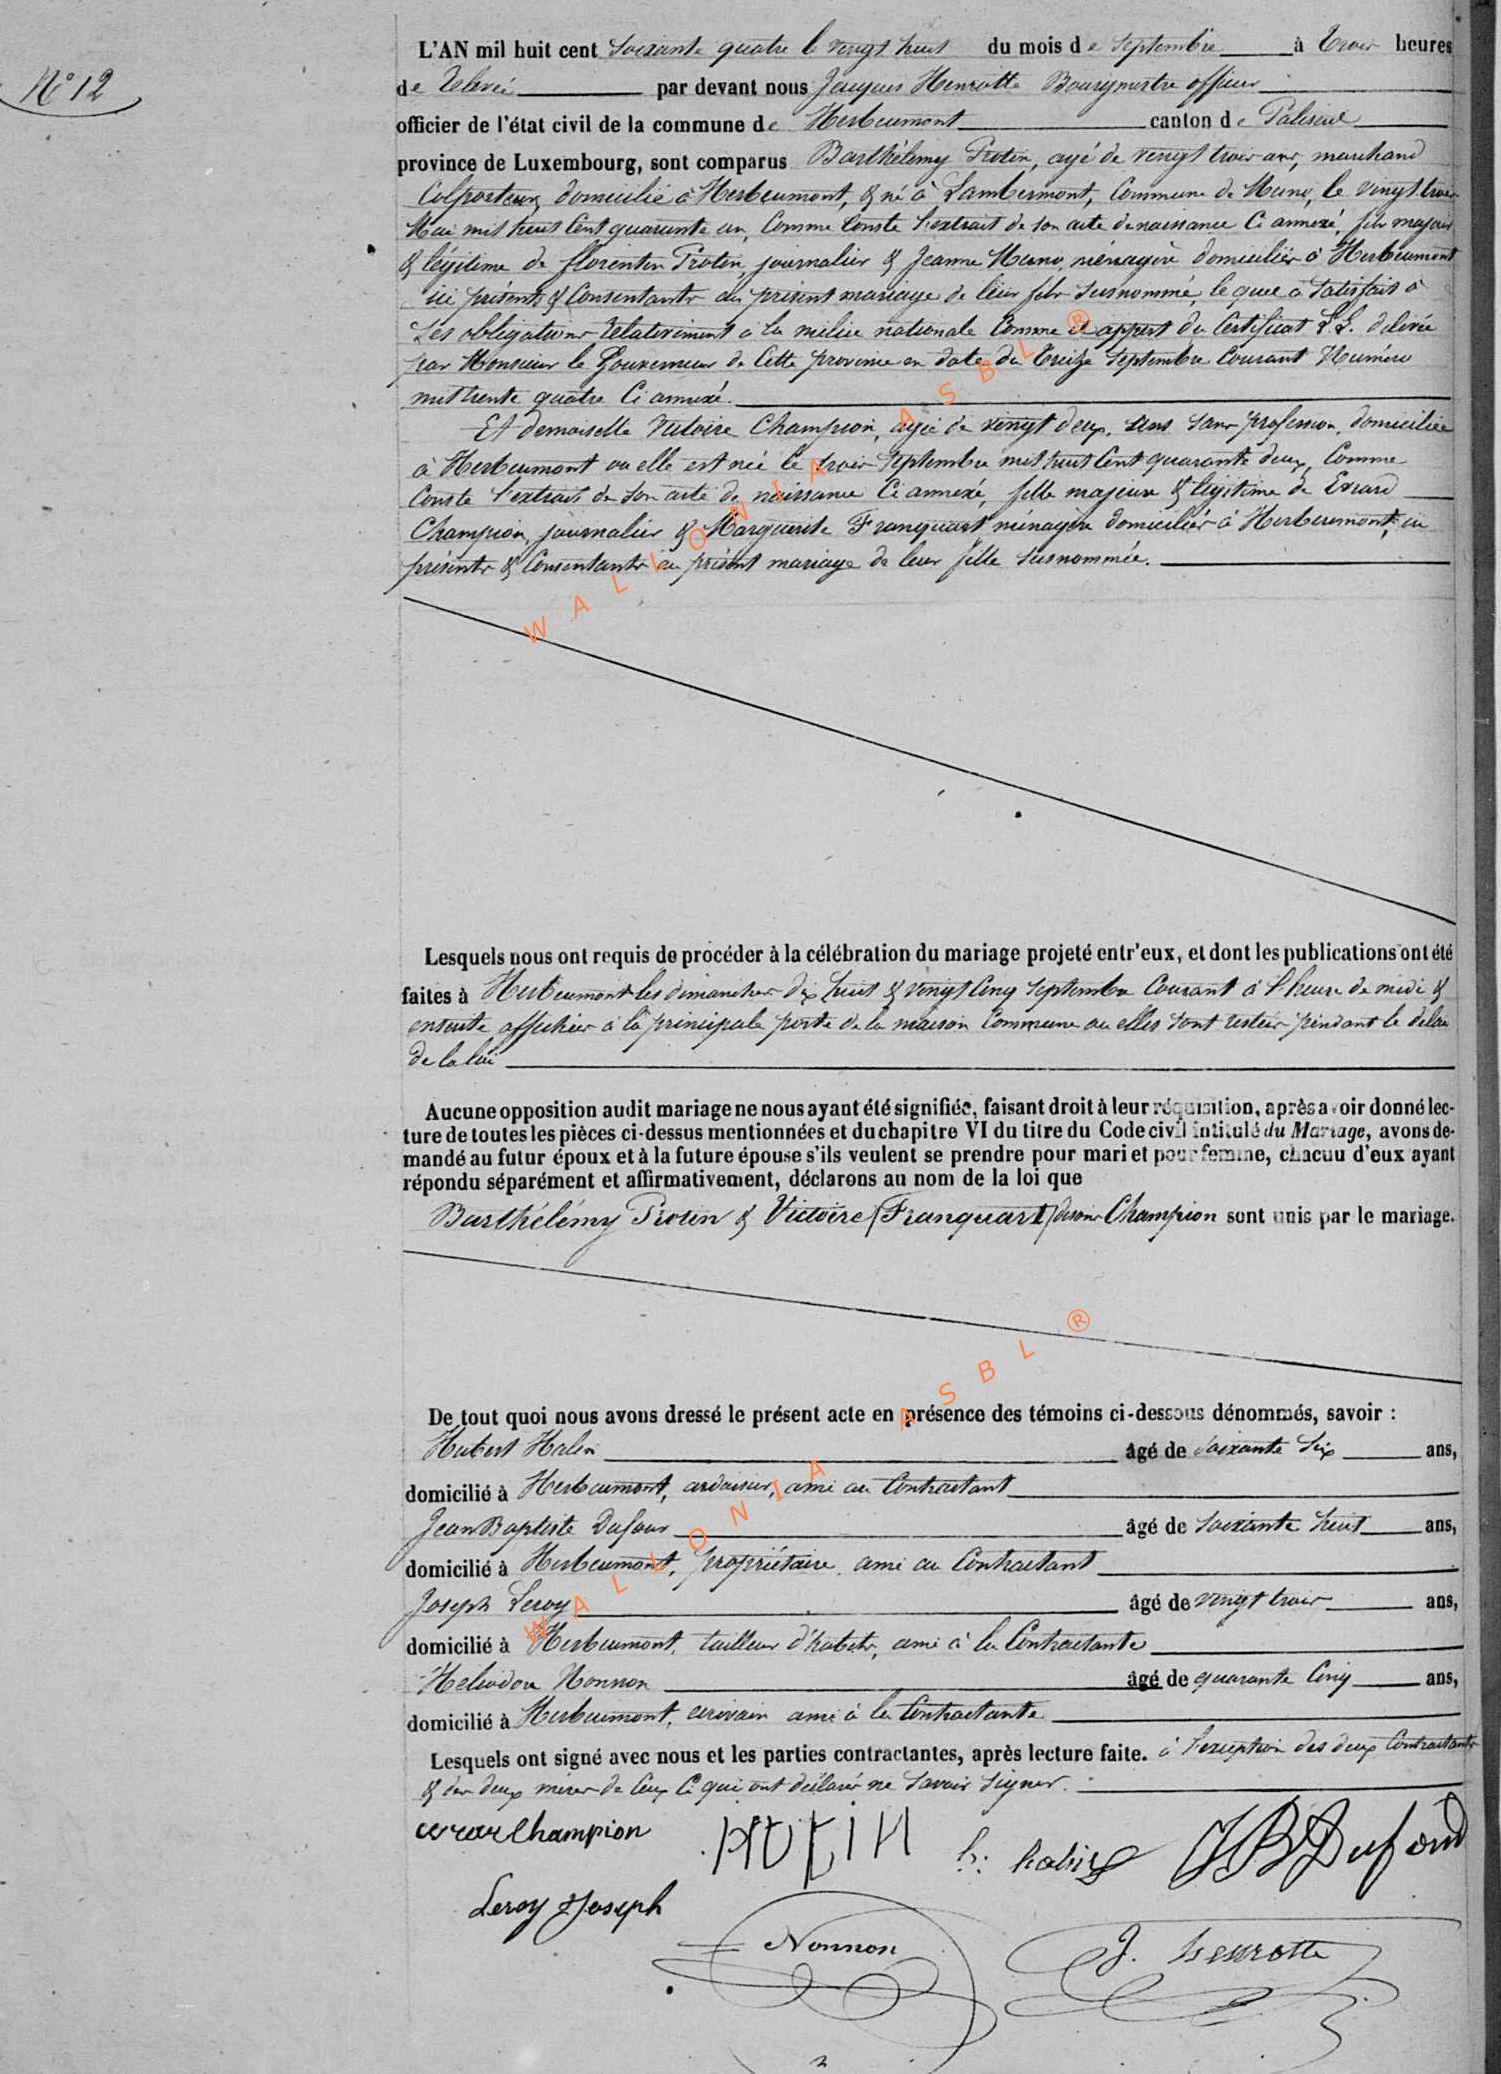 N° 12
L'AN mil huit cent soixante quatre le vingt huit du mois de Septembre à trois heures
de relevé par devant nous Jacques Henrotte Bourgmestre officier
officier de l'état civil de la commune de Herbeumont canton de Paliseul
province de Luxembourg, sont comparus Barthélémy Protin, agé de vingt trois ans, marchand
Colporteur, domicilié à Herbeumont, & né à Lambermont, Commune de Muno, le vingt trois
Mai mil huit Cent quarante un, Comme Conste l'extrait de son acte de naissance Ci annexé, fils majeur
& légitime de florentin Protin, journalier & Jeanne Muno, ménagère domiciliés à Herbeumont
ici présents & Consentants au présent mariage de leur fils susnommé, lequel a satisfait à
Ses obligations relativement à la milice nationale Comme il appert du Certificat L.L. délivré
par Monsieur le Gouverneur de Cette province en date du treize Septembre Courant Numéro
mil trente quatre Ci annexé.
Et demoiselle Victoire Champion, agée de vingt deux ans sans profession, domiciliée
à Herbeumont ou elle est née le trois Septembre mil huit Cent quarante deux, Comme
Conste l'extrait de son acte de naissance Ci annexé, fille majeure & légitime de Evrard
Champion, journalier & Marguerite Franquart ménagère domiciliés à Herbeumont, ici
présents & Consentants au présent mariage de leur fille susnommée.
Lesquels nous ont requis de procéder à la célébration du mariage projeté entr'eux, et dont les publications ont été
faites à Herbeumont les dimanches dix huit & vingt Cinq Septembre Courant à l'heure de midi &
ensuite affichées à la principale porte de la maison Commune ou elles sont restées pendant le délai
de la loi
Aucune opposition audit mariage ne nous ayant été signifiée, faisant droit à leur réquisition, après avoir donné lec-
ture de toutes les pièces ci-dessus mentionnées et du chapitre VI du titre du Code civil intitulé du Mariage, avons de-
mandé au futur époux et à la future épouse s'ils veulent se prendre pour mari et pour femme, chacuu d'eux ayant
répondu séparément et affirmativement, déclarons au nom de la loi que
Barthélémy Protin & Victoire (Franquart) disons Champion sont unis par le mariage.
De tout quoi nous avons dressé le présent acte en présence des témoins ci-dessous dénommés, savoir :
Hubert Halin âgé de soixante six ans,
domicilié à Herbeumont, ardoisier, ami au Contractant
Jean Baptiste Dufour âgé de soixante huit ans,
domicilié à Herbeumont, propriétaire, ami au Contractant
Joseph Leroy âgé de vingt trois ans,
domicilié à Herbeumont, tailleur d'habits, ami à la Contractante
Heliodore Nonnon âgé de quarante Cinq ans,
domicilié à Herbeumont, écrivain ami à la Contractante
Lesquels ont signé avec nous et les parties contractantes, après lecture faite. à l'exception des deux Contractants
& des deux mères de Ceux Ci qui ont déclaré ne savoir signer.
Champion protin h: halin JB Dufour
Leroy Joseph
Nonnon J. henrotte
WALLONIA ASBL ®
WALLONIA ASBL ®